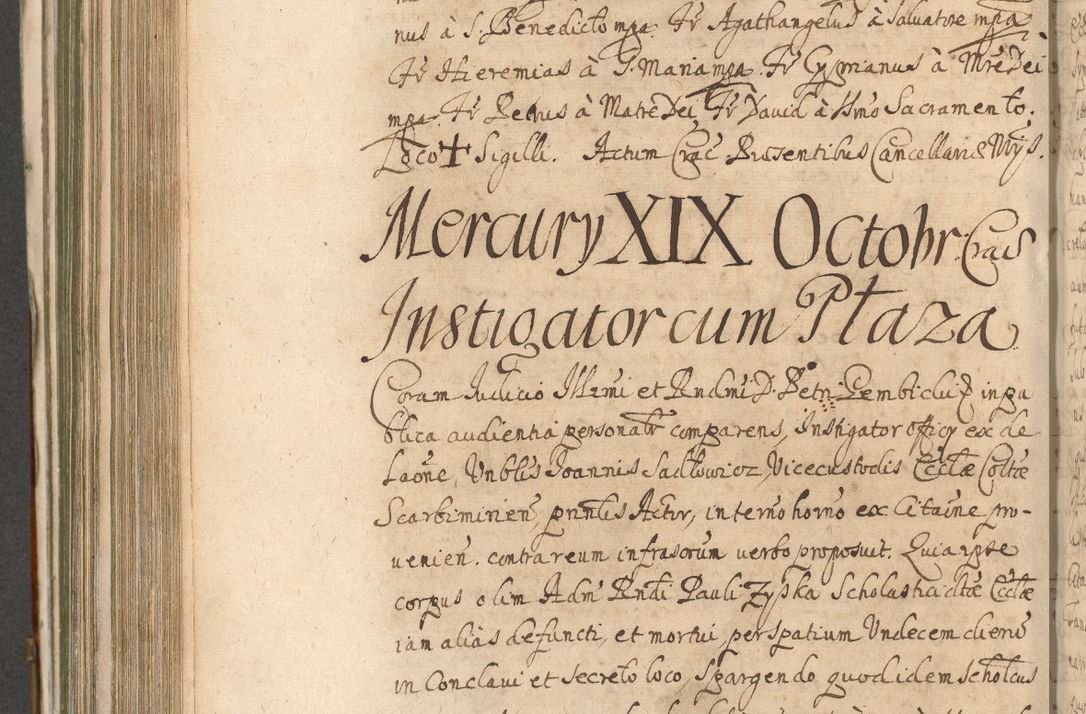 nus à S. Benedicto mpa. Fr̃ Agathangelus à Salvatore mpa
Fr̃ Hieremias à S. Maria mpa. Fr̃ Cyprianus à Mrẽ Dei
mpa. Fr̃ Petrus à Matre Dei Fr̃ David à Ssmo Sacramento.
Loco ✝ Sigilli. Actum Crac̃ Præsentibus Cancellariæ
Mercury XIX Octobr. Crac
Instigator cum Płaza
Coram Judicio Illrmi et Rndmi D. Petri Gembiclii in pu
blica audientia personałr comparens, Instigator officy ex de
laõne, Vnblis Joannis Sadłowicz, Vicecustodis Ecclæ Coltæ
Scarbimirien, prinlis Actor, in termõ hornõ ex Citaõne pro-
venien. contra reum infrascrum verbo proposuit. Quia ipse
corpus olim Adm̃ Rndi Pauli Zyska Scholastici dtæ Ecclæ
iam alias defuncti, et mortui, per spatium Vndecem dierũ
in Conclavi et secreto loco, spargendo quod idem Scholcus